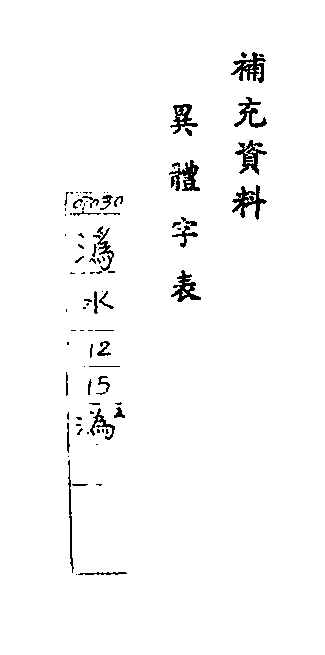 補充資料
異體字表
潙
水
12
15
溈